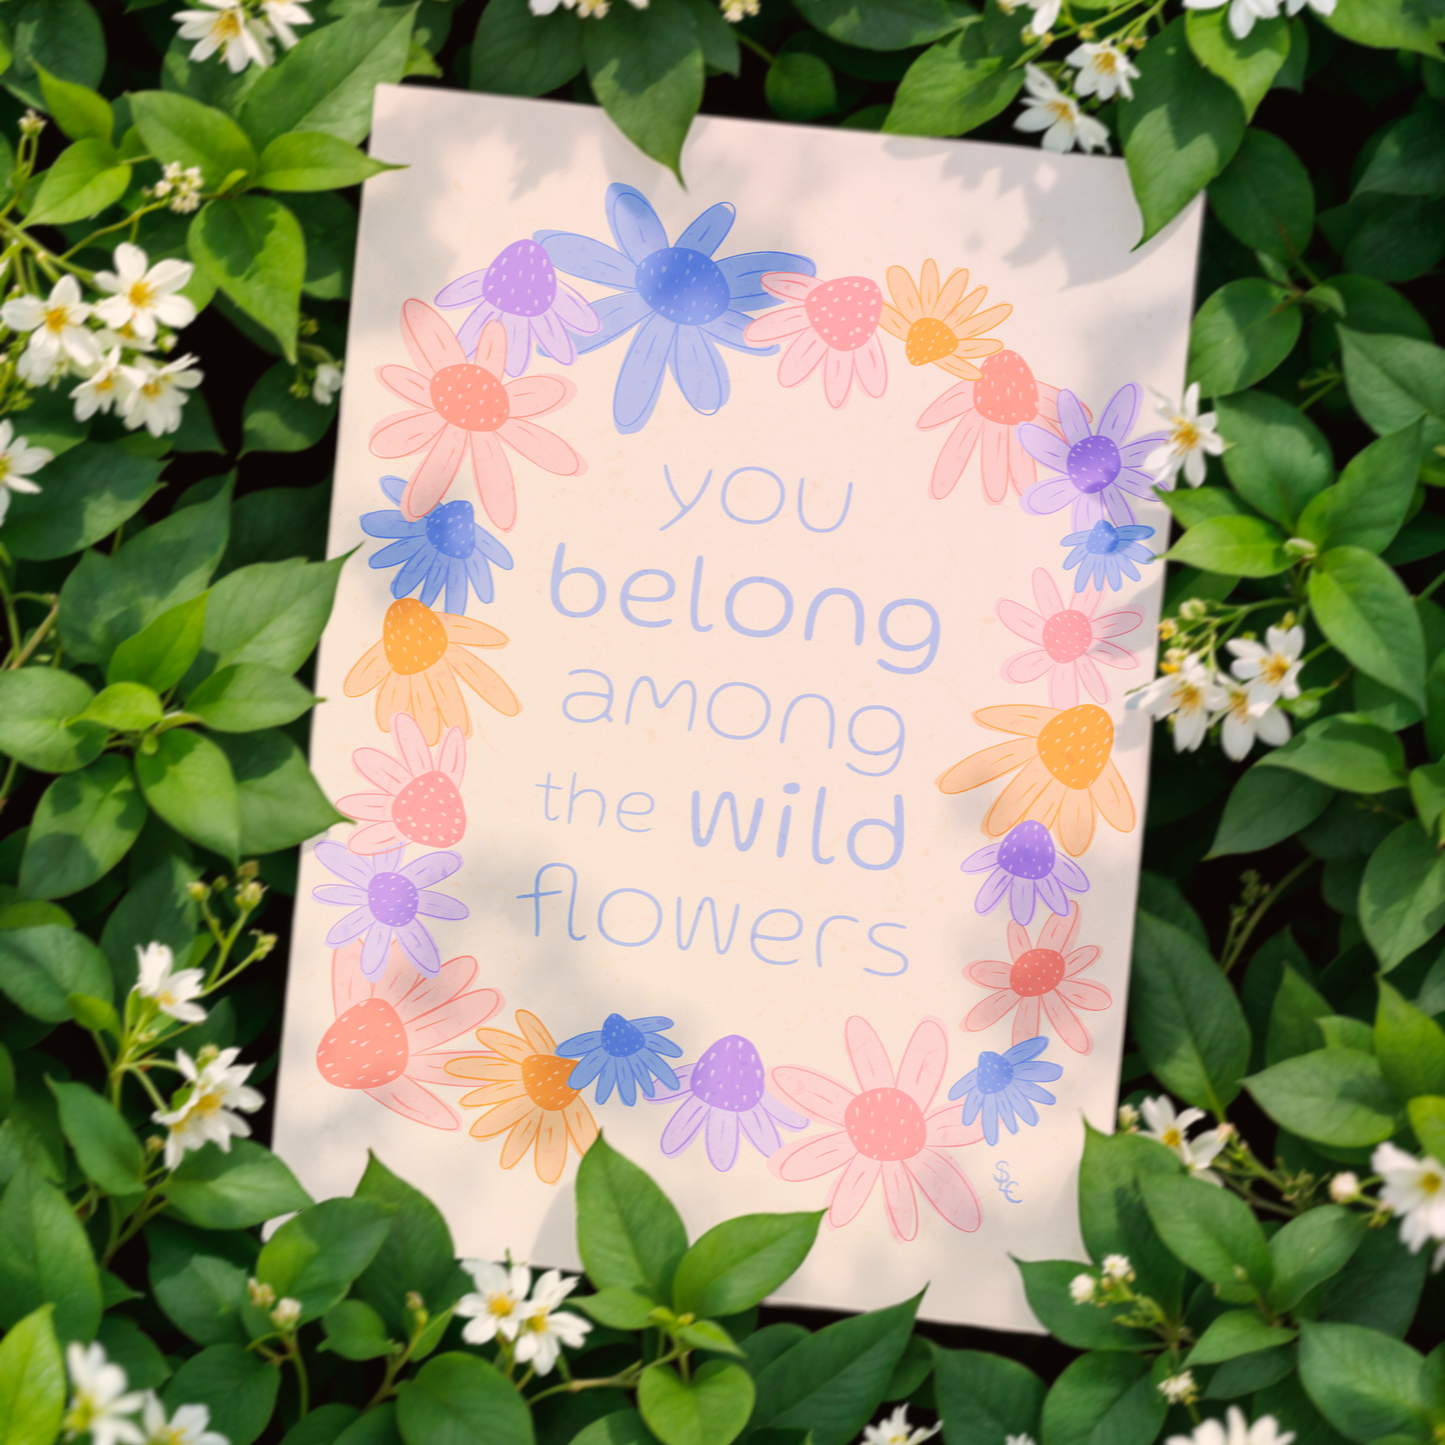 you
belong
among
the wild
flowers